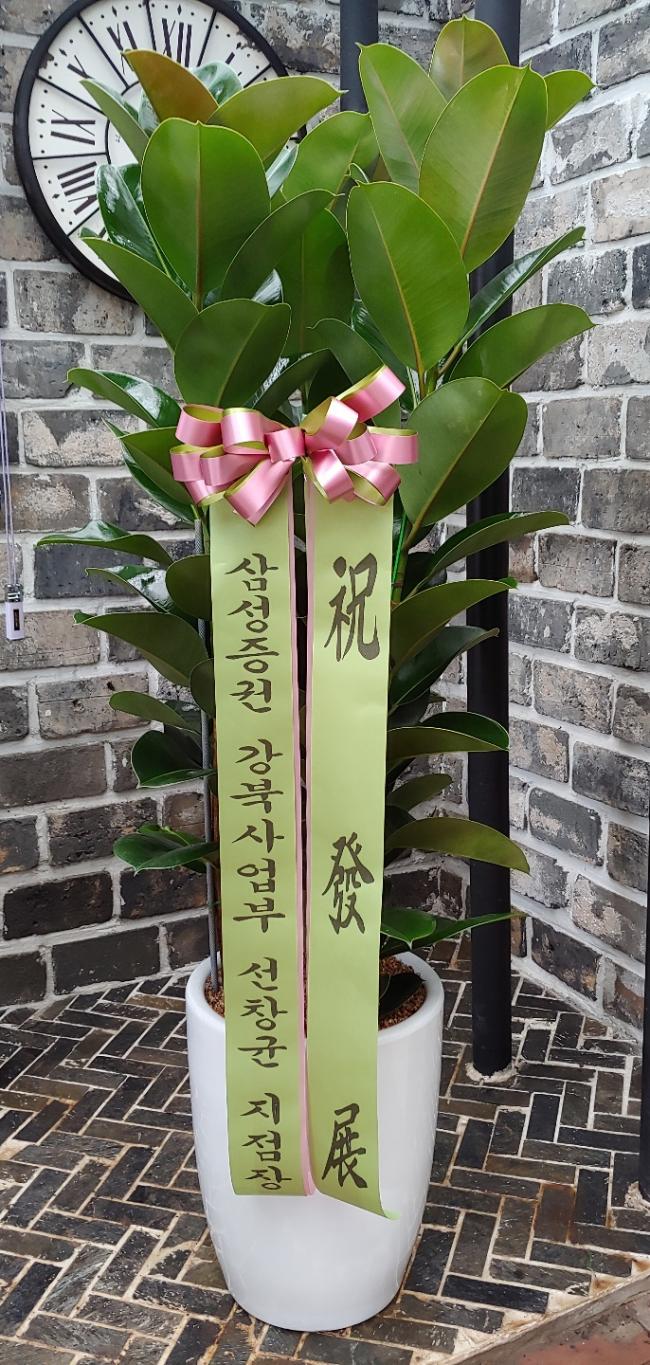 祝 發 展
삼성증권 강북사업부 선창균 지점장